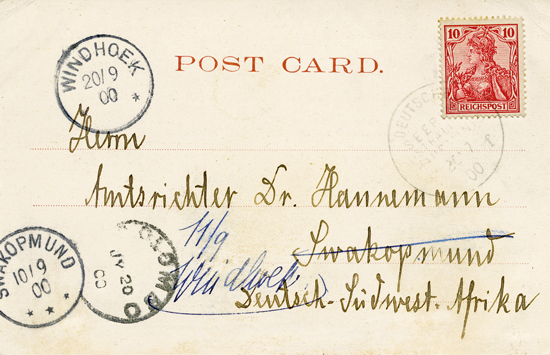 WINDHOEK
20/9
00
*
POST CARD.
10 10
REICHSPOST
DEUTSCHE
SEEPOST
00
Herrn
Amtsrichter Dr. Hannemann
11/9
Swakopmund
Windhoek
Deutsch-Südwest-Afrika
SWAKOPMUND
10/9
00
* * *
COLOMBO
JY 20
00